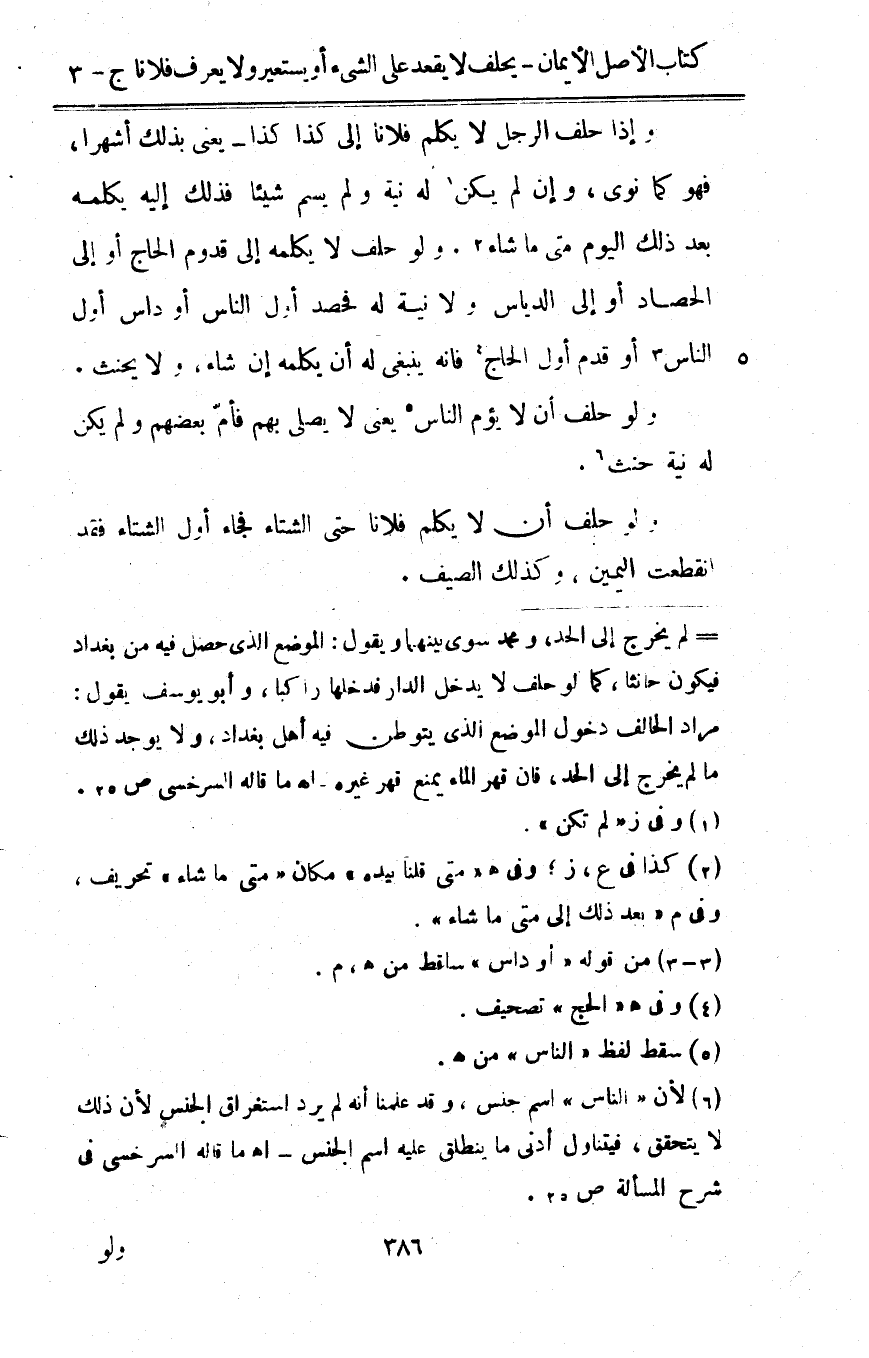 كتاب الأصل الأيمان – يحلف لا يقعد على الشىء أو يستعير ولا يعرف فلانا ج – ٣
و إذا حلف الرجل لا يكلم فلانا إلى كذا كذا – يعنى بذلك أشهرا،
فهو كما نوى، و إن لم يكن١ له نية و لم يسم شيئا فذلك إليه يكلمه
بعد ذلك اليوم متى ما شاء٢ . و لو حلف لا يكلمه إلى قدوم الحاج أو إلى
الحصاد أو إلى الدياس و لا نية له فحصد أول الناس أو داس أول
٥ الناس٣ أو قدم أول الحاج٤ فانه ينبغى له أن يكلمه إن شاء، و لا يحنث .
و لو حلف أن لا يؤم الناس٥ يعنى لا يصلى بهم فأمّ بعضهم و لم يكن
له نية حنث٦ .
و لو حلف أن لا يكلم فلانا حتى الشتاء فجاء أول الشتاء فقد
انقطعت اليمين، و كذلك الصيف .
= لم يخرج إلى الحد، و محمد سوى بينهما و يقول: الموضع الذى حصل فيه من بغداد
فيكون حانثا، كما لو حلف لا يدخل الدار فدخلها راكبا، و أبو يوسف يقول:
مراد الحالف دخول الموضع الذى يتوطن فيه أهل بغداد، و لا يوجد ذلك
ما لم يخرج إلى الحد، فان قهر الماء يمنع قهر غيره – اه ما قاله السرخسى ص ٢٥ .
(١) و فى ز « لم تكن » .
(٢) كذا فى ع، ز ؛ وفى ه « متى قلنا بيده » مكان « متى ما شاء » تحريف،
وفى م « بعد ذلك إلى متى ما شاء » .
(٣–٣) من قوله « أو داس » ساقط من ه، م .
(٤) و فى ه « الحج » تصحيف .
(٥) سقط لفظ « الناس » من ه .
(٦) لأن « الناس » اسم جنس، و قد علمنا أنه لم يرد استغراق الجنس لأن ذلك
لا يتحقق، فيتناول أدنى ما ينطلق عليه اسم الجنس – اه ما قاله السرخسى فى
شرح المسألة ص ٢٥ .
٣٨٦ ولو